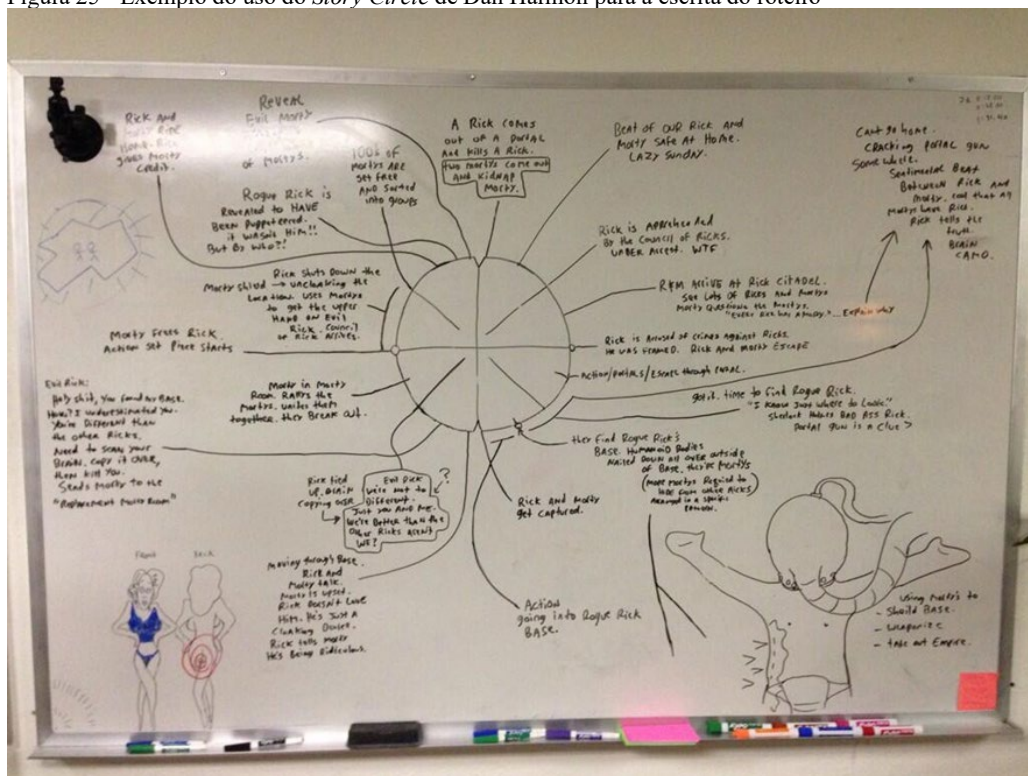 Figura 25 - Exemplo do uso do Story Circle de Dan Harmon para a escrita do roteiro
Rick and
gives Morty
Credit.
Reveal
Evil Morty
of Mortys.
100s of
Mortys are
set free
and sorted
into groups
A Rick comes
out of a portal
and kills a Rick.
two Mortys come out
and kidnap
Morty.
Beat of our Rick and
Morty safe at home.
Lazy Sunday.
Can't go home.
Cracking portal gun
some where.
Sentimental Beat
Between Rick and
Morty.
Mortys have Ricks.
Rick tells the
truth.
Brain
Camo.
Rogue Rick is
Revealed to HAVE
Been puppeteered.
it wasn't Him!!
But By who?!
Rick is apprehended
By the Council of Ricks.
Under Arrest. WTF
Rick shuts down the
Morty shield → uncloaking the
Location. uses Mortys
to get the upper
Hand on Evil
Rick. Council
of Ricks Arrives.
R&M Arrive at Rick Citadel.
see lots of Ricks and Mortys
Morty Questions the Mortys.
"Every Rick has a Morty."... Explain why
Morty Frees Rick.
Action Set Piece Starts
Rick is Accused of crimes against Ricks.
He was framed. Rick and Morty Escape
Action/Portals/Escape through Portal.
Evil Rick:
Holy shit, you found my Base.
How? I underestimated you.
You're Different than
the other Ricks.
Need to scan your
Brain, copy it over,
then kill you.
Sends Morty to the
"Replacement Morty Room"
Morty in Morty
Room. Rallys the
Mortys, unites them
together. they Break out.
got it. time to find Rogue Rick.
"I know just where to look."
Sherlock Holmes BAD ASS Rick.
Portal gun is a clue >
they find Rogue Rick's
Base. Humanoid Bodies
nailed down all over outside
of Base, they're Mortys
(more mortys Required to
hide from other Ricks
arranged in a specific
pattern.
Rick tied
up. Brain
copying over
Evil Rick
we're not so
Different.
Just you and me.
We're better than the
Other Ricks aren't
we?
?
Rick and Morty
get captured.
Moving through Base.
Rick and
Morty talk.
Morty is upset.
Rick Doesn't Love
Him. He's Just a
Cloaking Device.
Rick tells Morty
He's Being Ridiculous.
Action
going into Rogue Rick
Base.
Front
Back
using Morty's to
- Sheild Base.
- weaponize
- take out Empire.